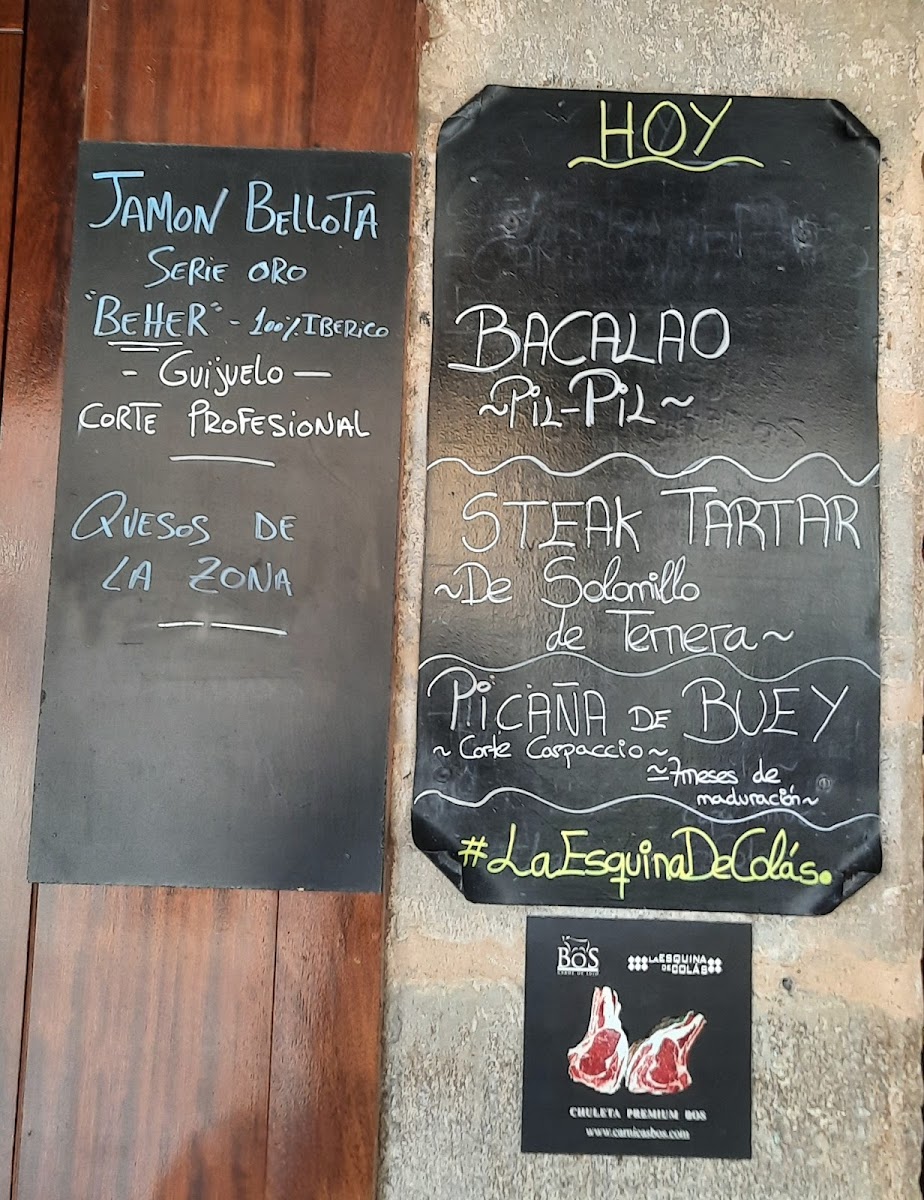 JAMON BELLOTA
SERIE ORO
"BEHER" - 100% IBERICO
- GUIJUELO -
CORTE PROFESIONAL
QUESOS DE
LA ZONA
HOY
BACALAO
~PIL-PIL~
STEAK TARTAR
~De Solomillo
de Ternera~
PICAÑA DE BUEY
~Corte Carpaccio~
~7meses de
maduración~
#LaEsquinaDeColás.
BOS
LA ESQUINA
DE COLÁS
CHULETA PREMIUM BOS
www.carnicasbos.com